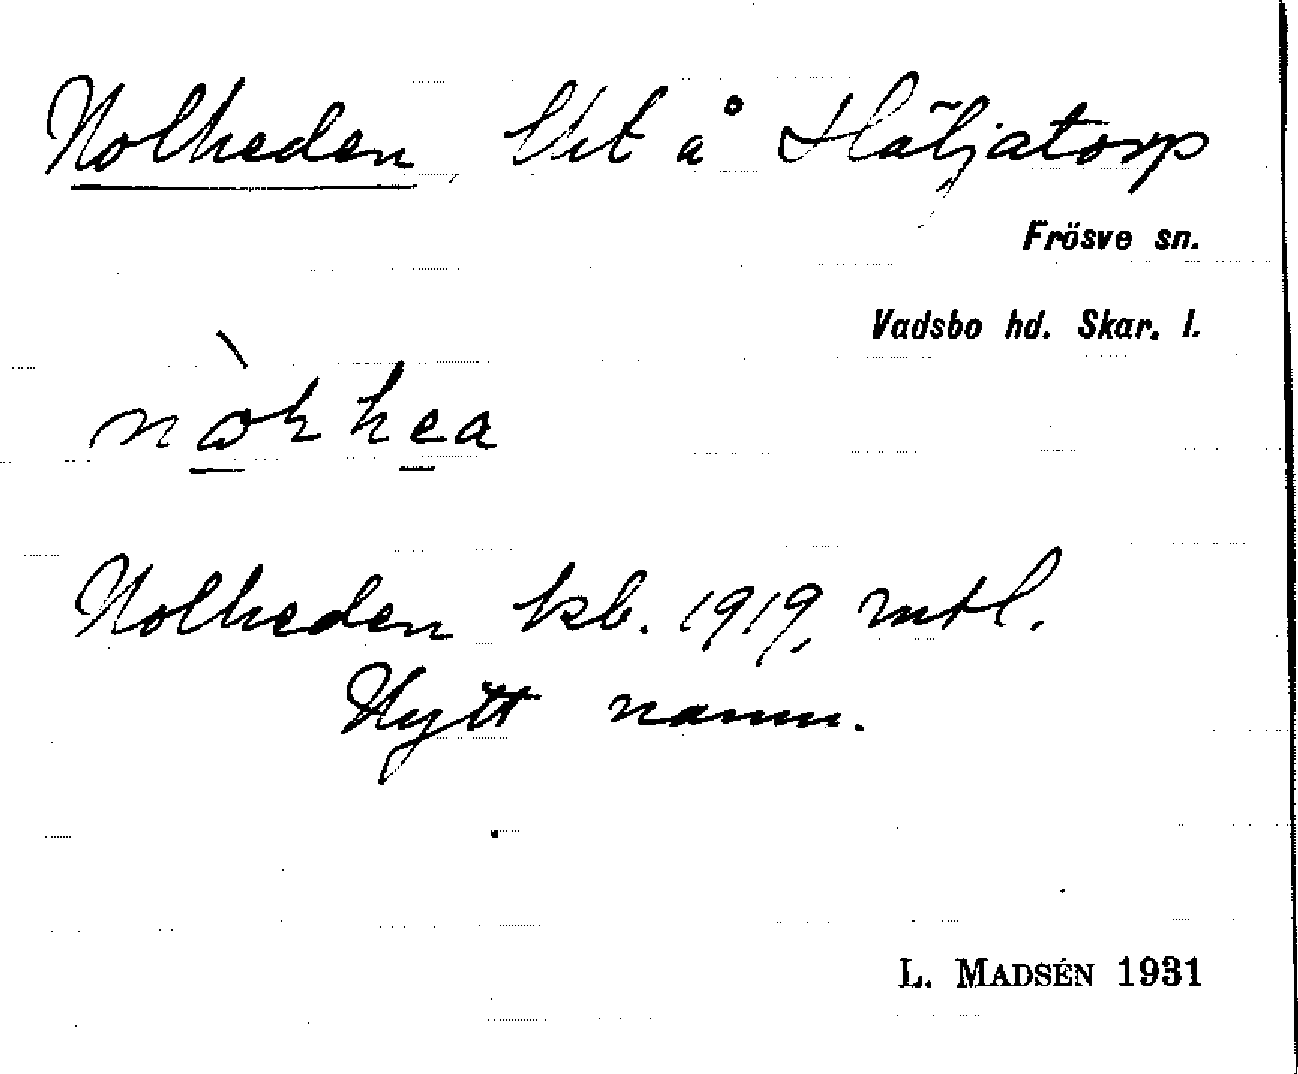 Nolheden, lht å Häljatorp
Frösve sn.
Vadsbo hd. Skar. l.
Nolheden kb. 1919, mtl.
Nytt namn.
L. MADSÉN 1931